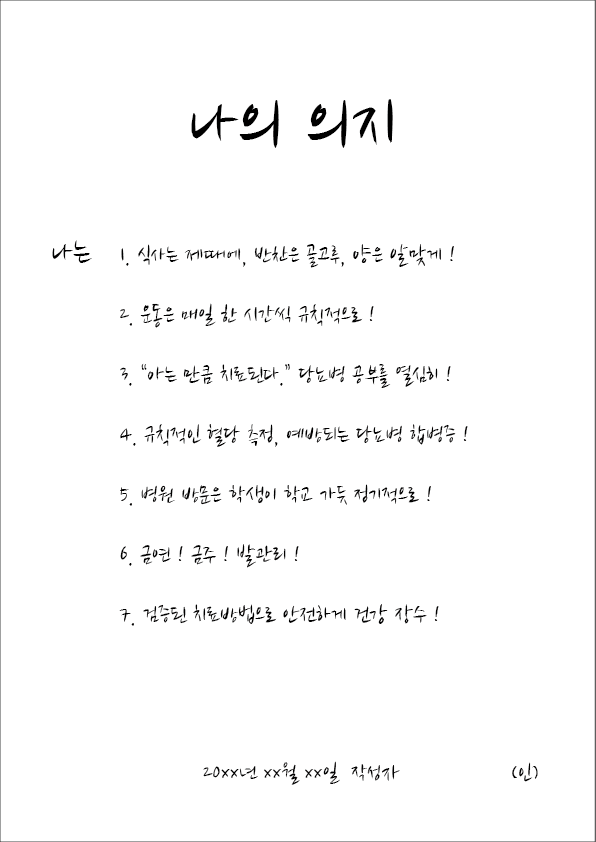 나의 의지
나는 1. 식사는 제때에, 반찬은 골고루, 양은 알맞게 !
2. 운동은 매일 한 시간씩 규칙적으로 !
3. “아는 만큼 치료된다.” 당뇨병 공부를 열심히 !
4. 규칙적인 혈당 측정, 예방되는 당뇨병 합병증 !
5. 병원 방문은 학생이 학교 가듯 정기적으로 !
6. 금연 ! 금주 ! 발관리 !
7. 검증된 치료방법으로 안전하게 건강 장수 !
20xx년 xx월 xx일 작성자 (인)